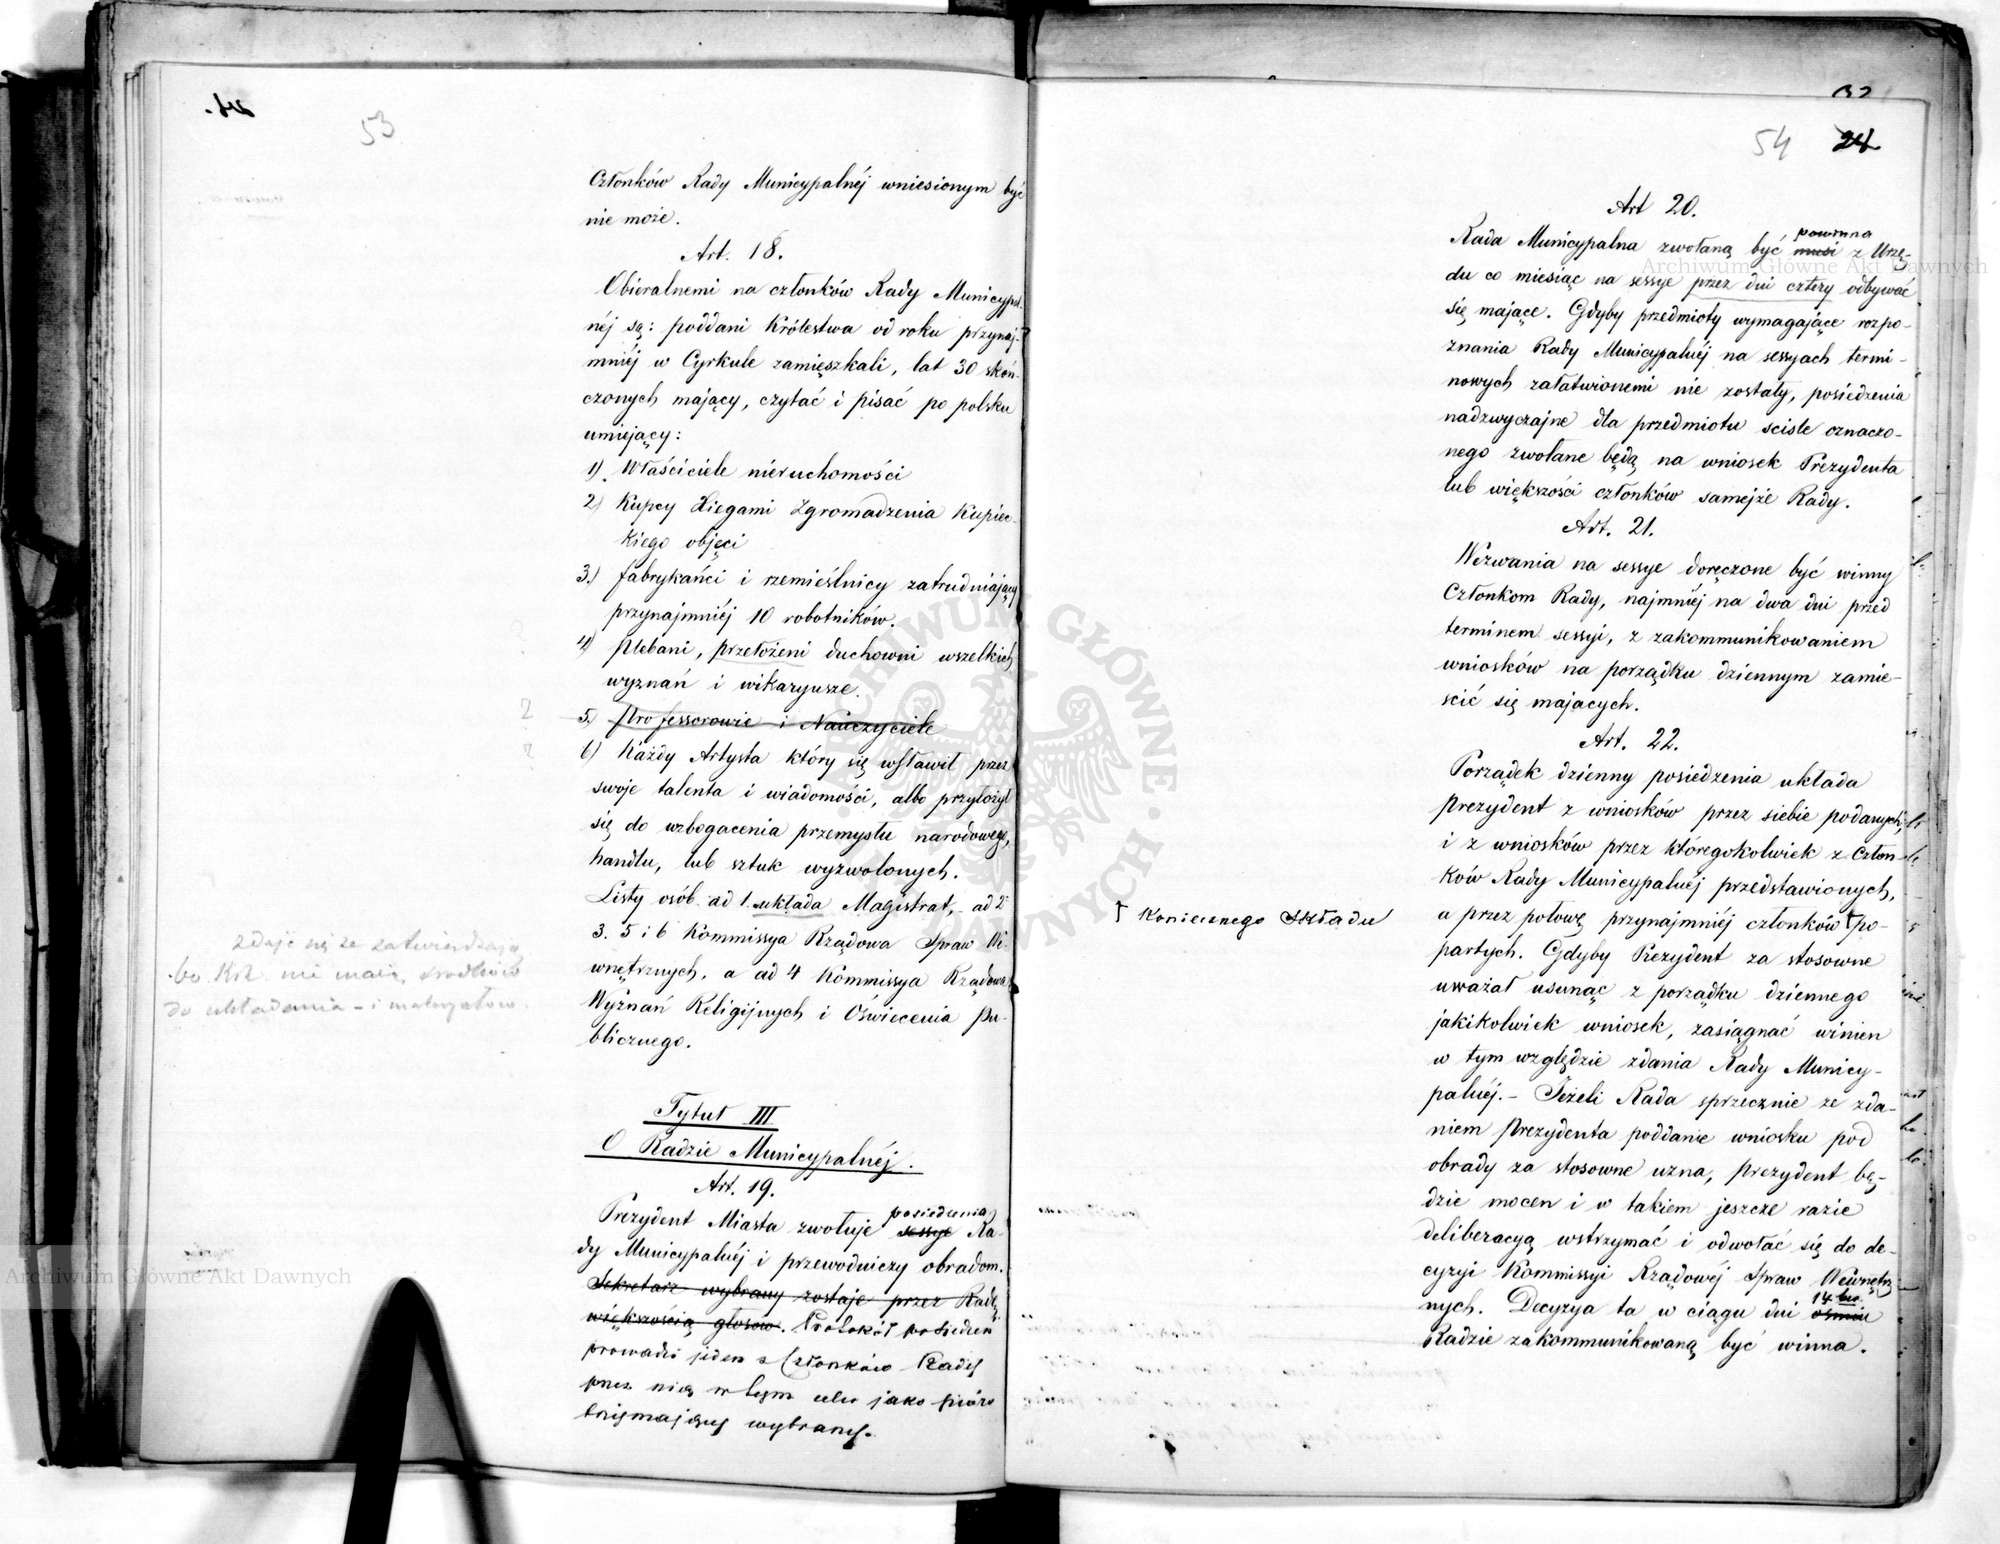 53
Członków Rady Municypalnéj wniesionym być
nie może.
Art. 18.
Obieralnemi na członków Rady Municypal-
néj są: poddani Królestwa od roku przynaj-
mniéj w Cyrkule zamięszkali, lat 30 skoń-
czonych mający, czytać i pisać po polsku
umiejący:
1) Właściciele nieruchomości
2) Kupcy Xięgami Zgromadzenia Kupiec-
kiego objęci
3.) fabrykańci i rzemieślnicy zatrudniający
przynajmniéj 10 robotników.
4) Plebani, przełożeni duchowni wszelkich
wyznań i wikaryusze.
5.) Professorowie i Nauczyciele
6) Każdy Artysta który się wsławił przez
swoje talenta i wiadomości, albo przyłożył
się do wzbogacenia przemysłu narodowego,
handlu, lub sztuk wyzwolonych.
Listy osób ad 1. układa Magistrat, - ad 2
3. 5 i 6 Kommissya Rządowa Spraw We-
wnętrznych, a ad 4 Kommissya Rządowa
Wyznań Religijnych i Oświecenia Pu-
blicznego.
zdaje się że zatwierdzają
bo Krz. nie mają środków
do układania - i
Tytuł III
O Radzie Municypalnéj.
Art. 19.
posiedzenia
Prezydent Miasta zwołuje sessye Ra-
dy Municypalnéj i przewodniczy obradom.
Sekretarz wybrany zostaje przez Radę
większością głosów. Protokół posiedzeń
prowadzi jeden z Członków Rady
przez nią w tym celu jako pióro
trzymający wybrany.
32
54 24
Art 20.
powinna
Rada Municypalna zwołaną być musi z Urzę-
du co miesiąc na sessye przez dni cztery odbywać
się mające. Gdyby przedmioty wymagające rozpo-
znania Rady Municypalnéj na sessyach termi-
nowych załatwionemi nie zostały, posiedzenia
nadzwyczajne dla przedmiotu sciśle oznaczo-
nego zwołane będą na wniosek Prezydenta
lub większości członków samejże Rady.
Art. 21.
Wezwania na sessye doręczone być winny
Członkom Rady, najmniéj na dwa dni przed
terminem sessyi, z zakommunikowaniem
wniosków na porządku dziennym zamie-
scić się mających.
Art. 22.
Porządek dzienny posiedzenia układa
Prezydent z wniosków przez siebie podanych,
i z wniosków przez któregokolwiek z Człon-
ków Rady Municypalnéj przedstawionych,
a przez połowę przynajmniéj członków † po-
† Koniecznego składu
partych. Gdyby Prezydent za stosowne
uważał usunąć z porządku dziennego
jakikolwiek wniosek, zasiągnąć winien
w tym względzie zdania Rady Municy-
palnéj. - Jeżeli Rada sprzecznie ze zda-
niem Prezydenta poddanie wniosku pod
obrady za stosowne uzna, Prezydent bę-
dzie mocen i w takiem jeszcze razie
deliberacyą wstrzymać i odwołać się do de-
cyzyi Kommissyi Rządowéj Spraw Wewnętrz-
nych. Decyzya ta w ciągu dni ośmiu
14tu
Radzie zakommunikowaną być winna.
Archiwum Główne Akt Dawnych
Archiwum Główne Akt Dawnych
ARCHIWUM GŁÓWNE · AKT DAWNYCH ·